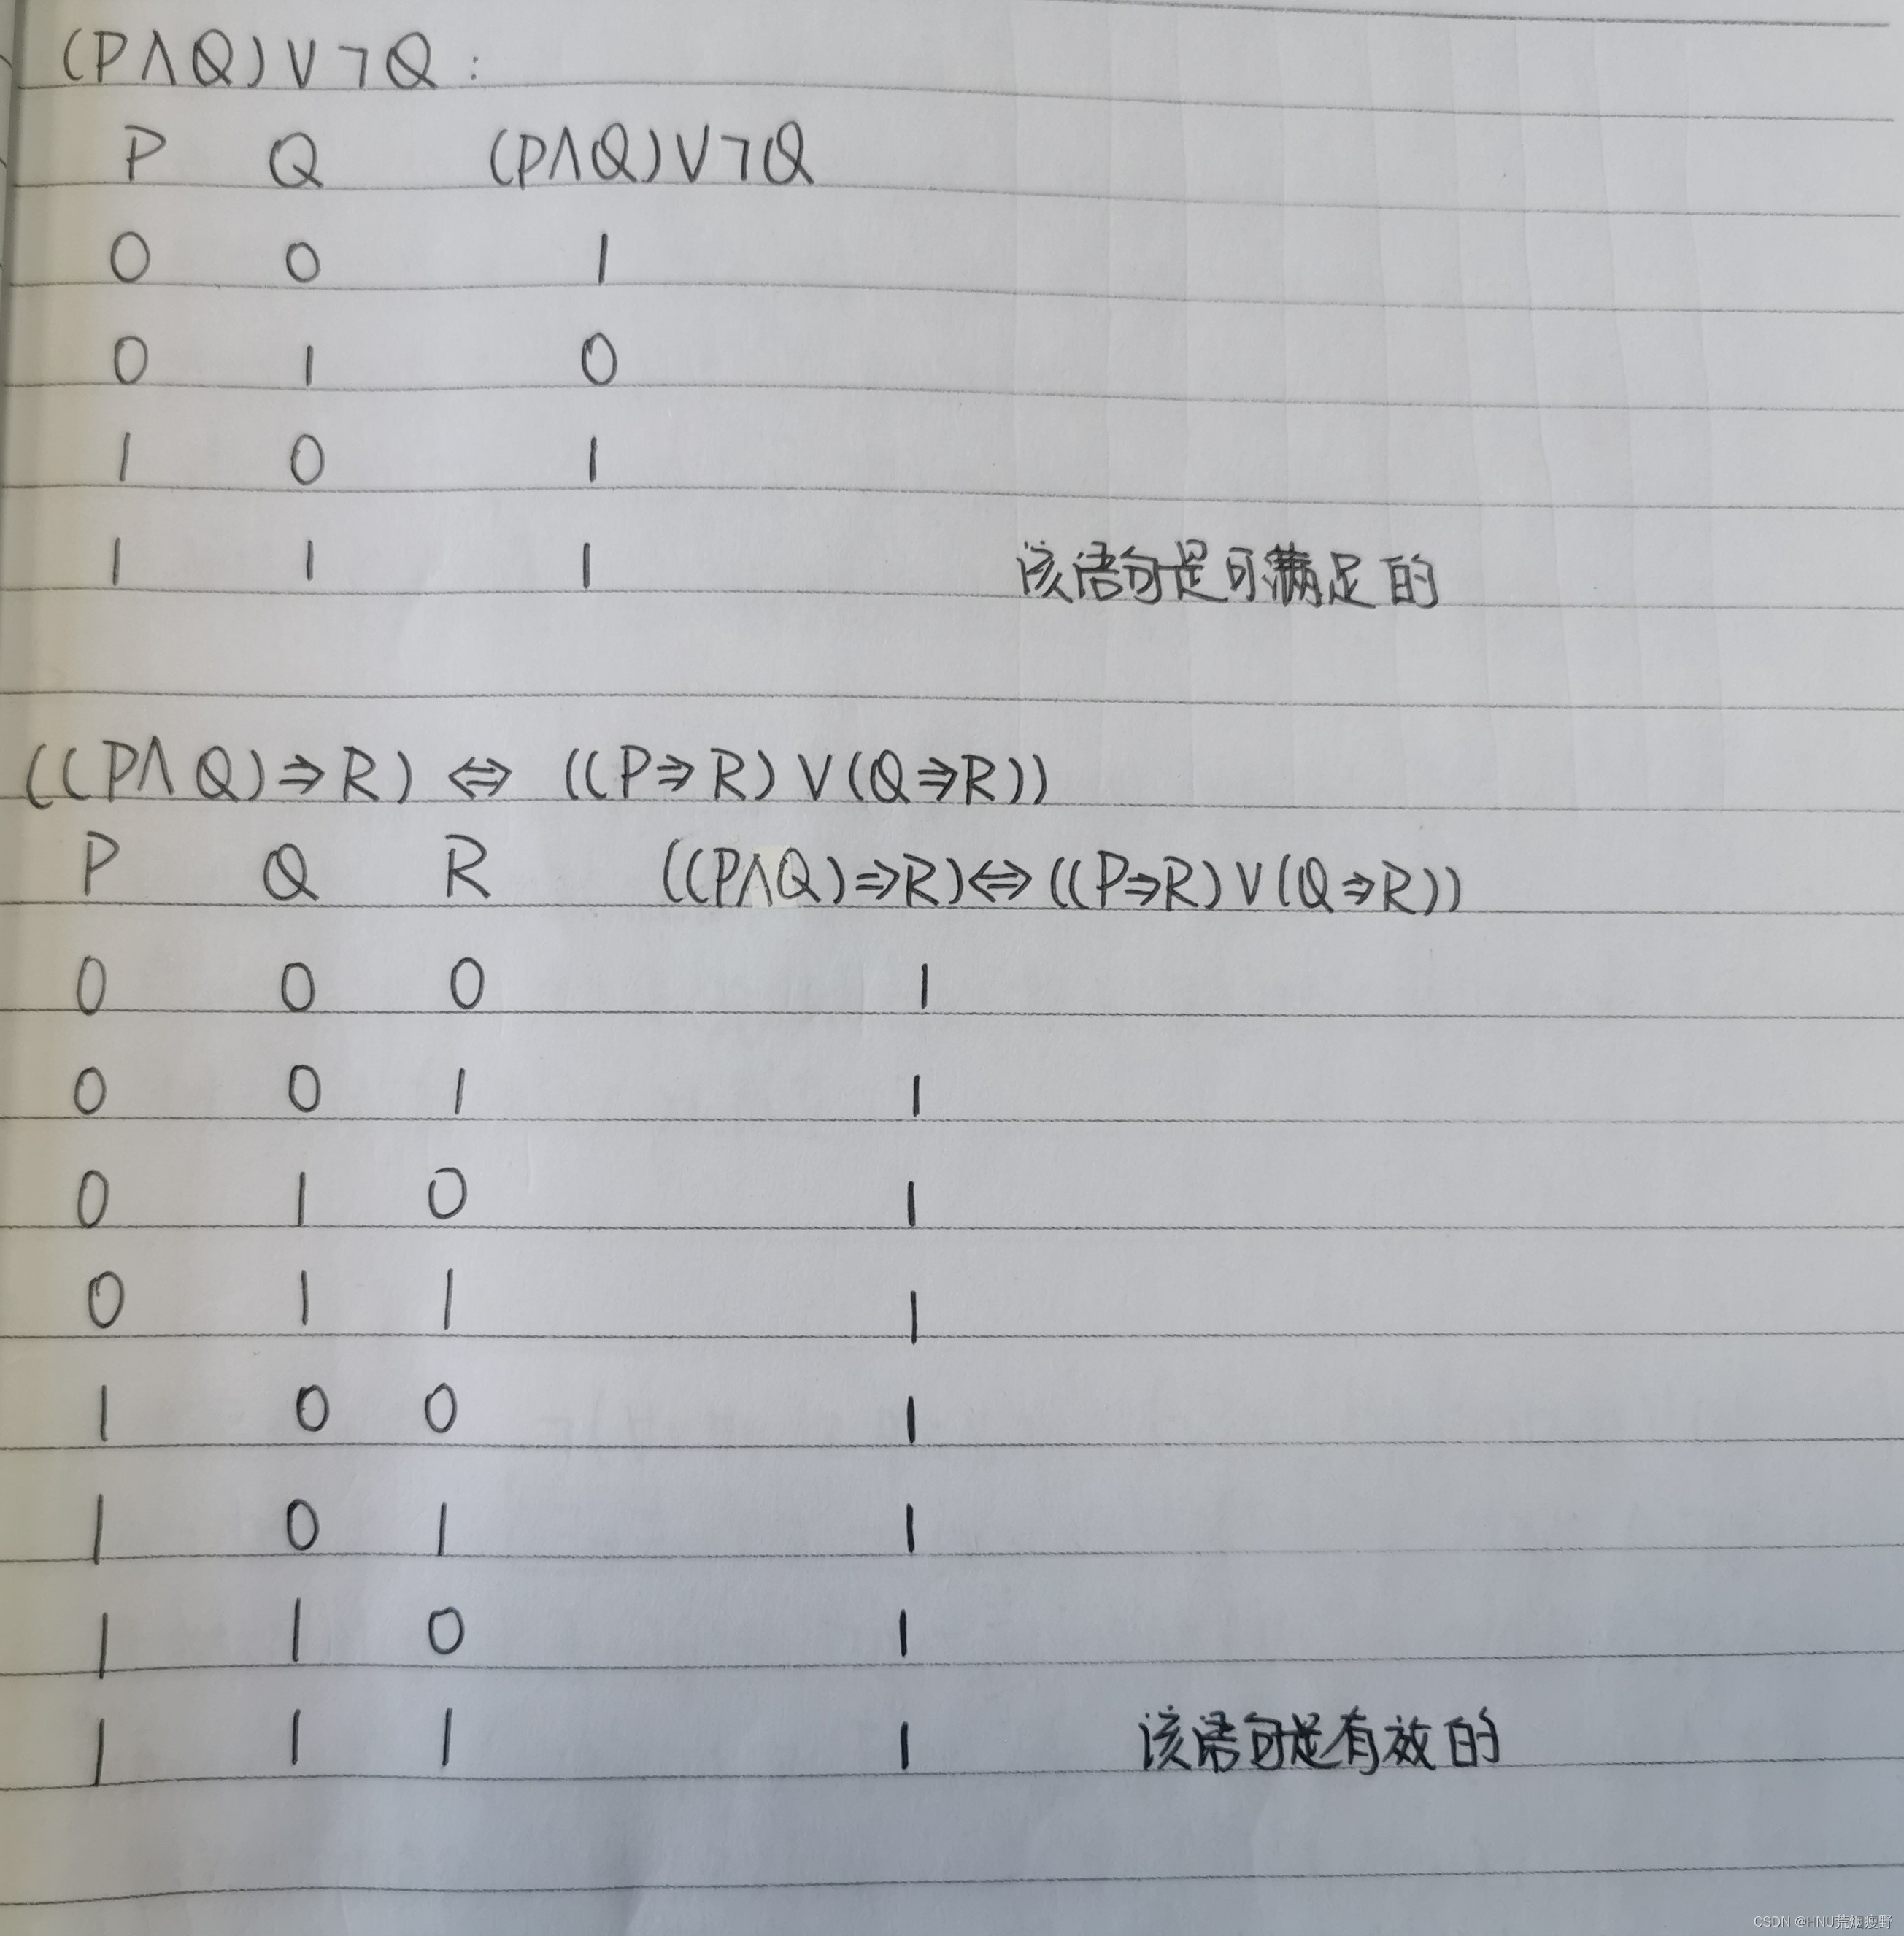 (P∧Q)∨¬Q:
P Q (P∧Q)∨¬Q
0 0 1
0 1 0
1 0 1
1 1 1 该语句是可满足的
((P∧Q)⇒R) ⇔ ((P⇒R)∨(Q⇒R))
P Q R ((P∧Q)⇒R)⇔((P⇒R)∨(Q⇒R))
0 0 0 1
0 0 1 1
0 1 0 1
0 1 1 1
1 0 0 1
1 0 1 1
1 1 0 1
1 1 1 1 该语句是有效的
CSDN @HNU荒烟瘦野